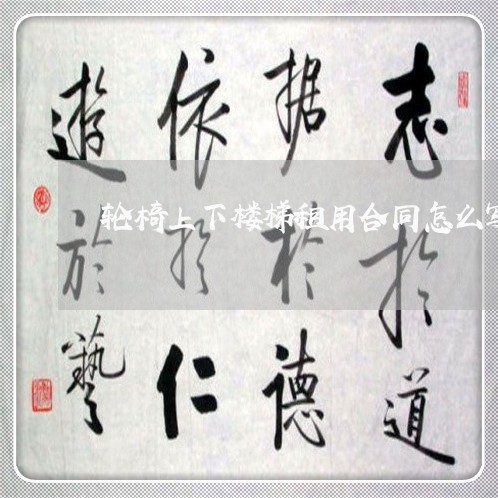 志於道
据於德
依於仁
遊於藝
轮椅上下楼梯租用合同怎么